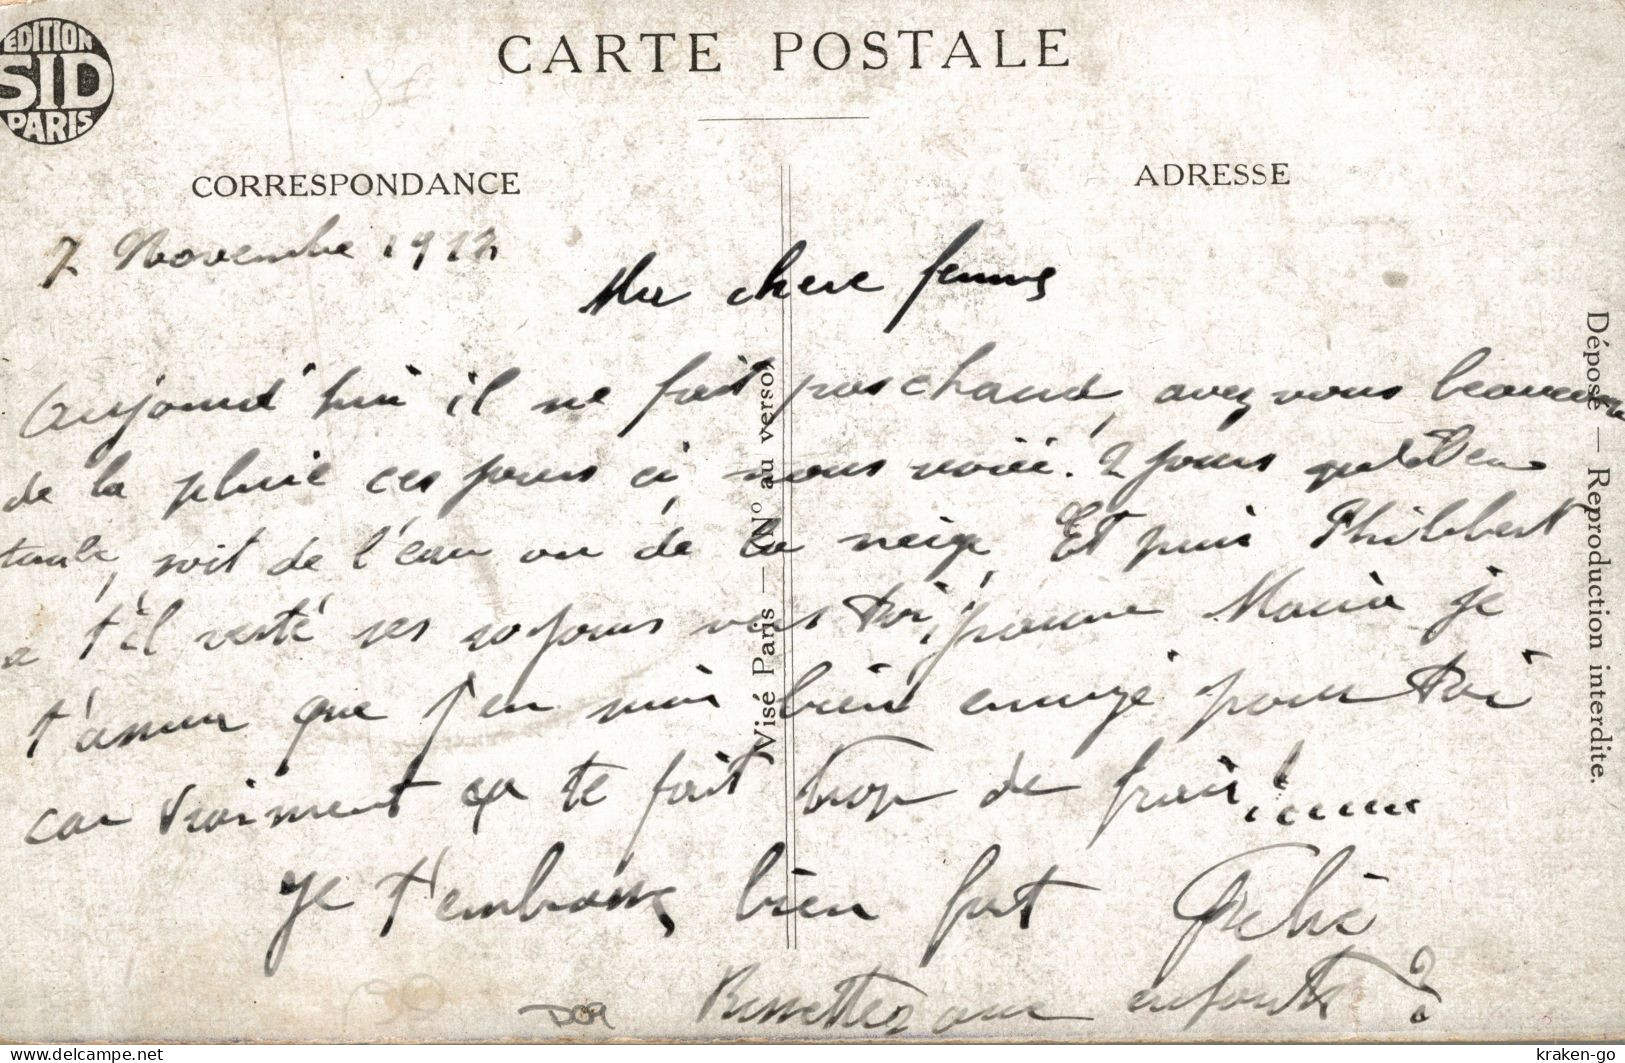 EDITION
SID
PARIS
CARTE POSTALE
CORRESPONDANCE
ADRESSE
7 Novembre 191
Ma chere femme
Aujourd'hui il ne fait pas chaud, avez vous beaucoup
de la pluie ces jours ci, nous voici 2 jours
soit de l'eau ou de la neige Et puis Philibert
a t'il resté ses 20 jours vers toi, pauvre Maria je
t'assur que j'en suis bien ennuyé pour toi
car vraiment ça te fait trop de frais!
Je t'embrasse bien fort
aux enfants
Visé Paris — No au verso
Déposé — Reproduction interdite.
kraken-go
www.delcampe.net